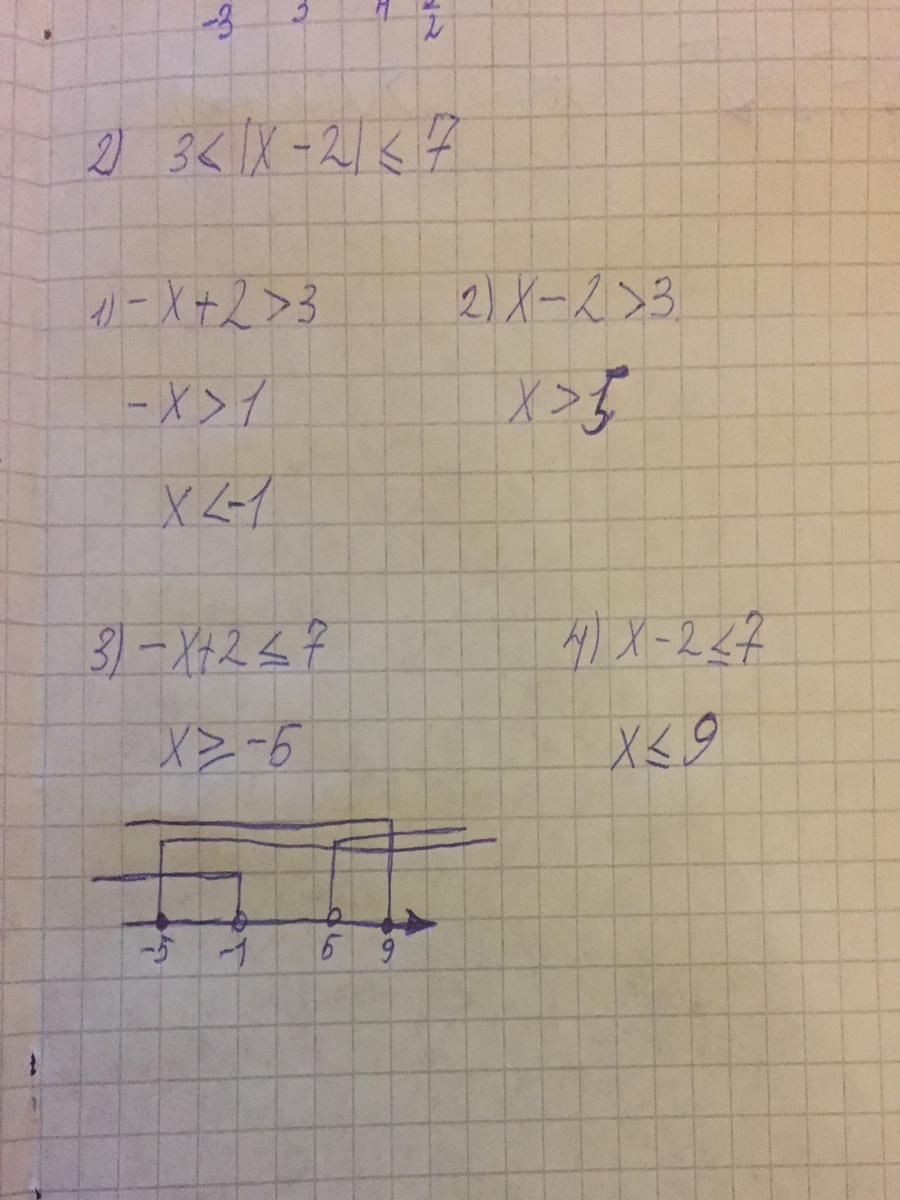 -3 3 4
2
2) 3 < |x - 2| ≤ 7
1) -x + 2 > 3 2) x - 2 > 3
-x > 1 x > 5
x < -1
3) -x + 2 ≤ 7 4) x - 2 ≤ 7
x ≥ -5 x ≤ 9
-5 -1 5 9